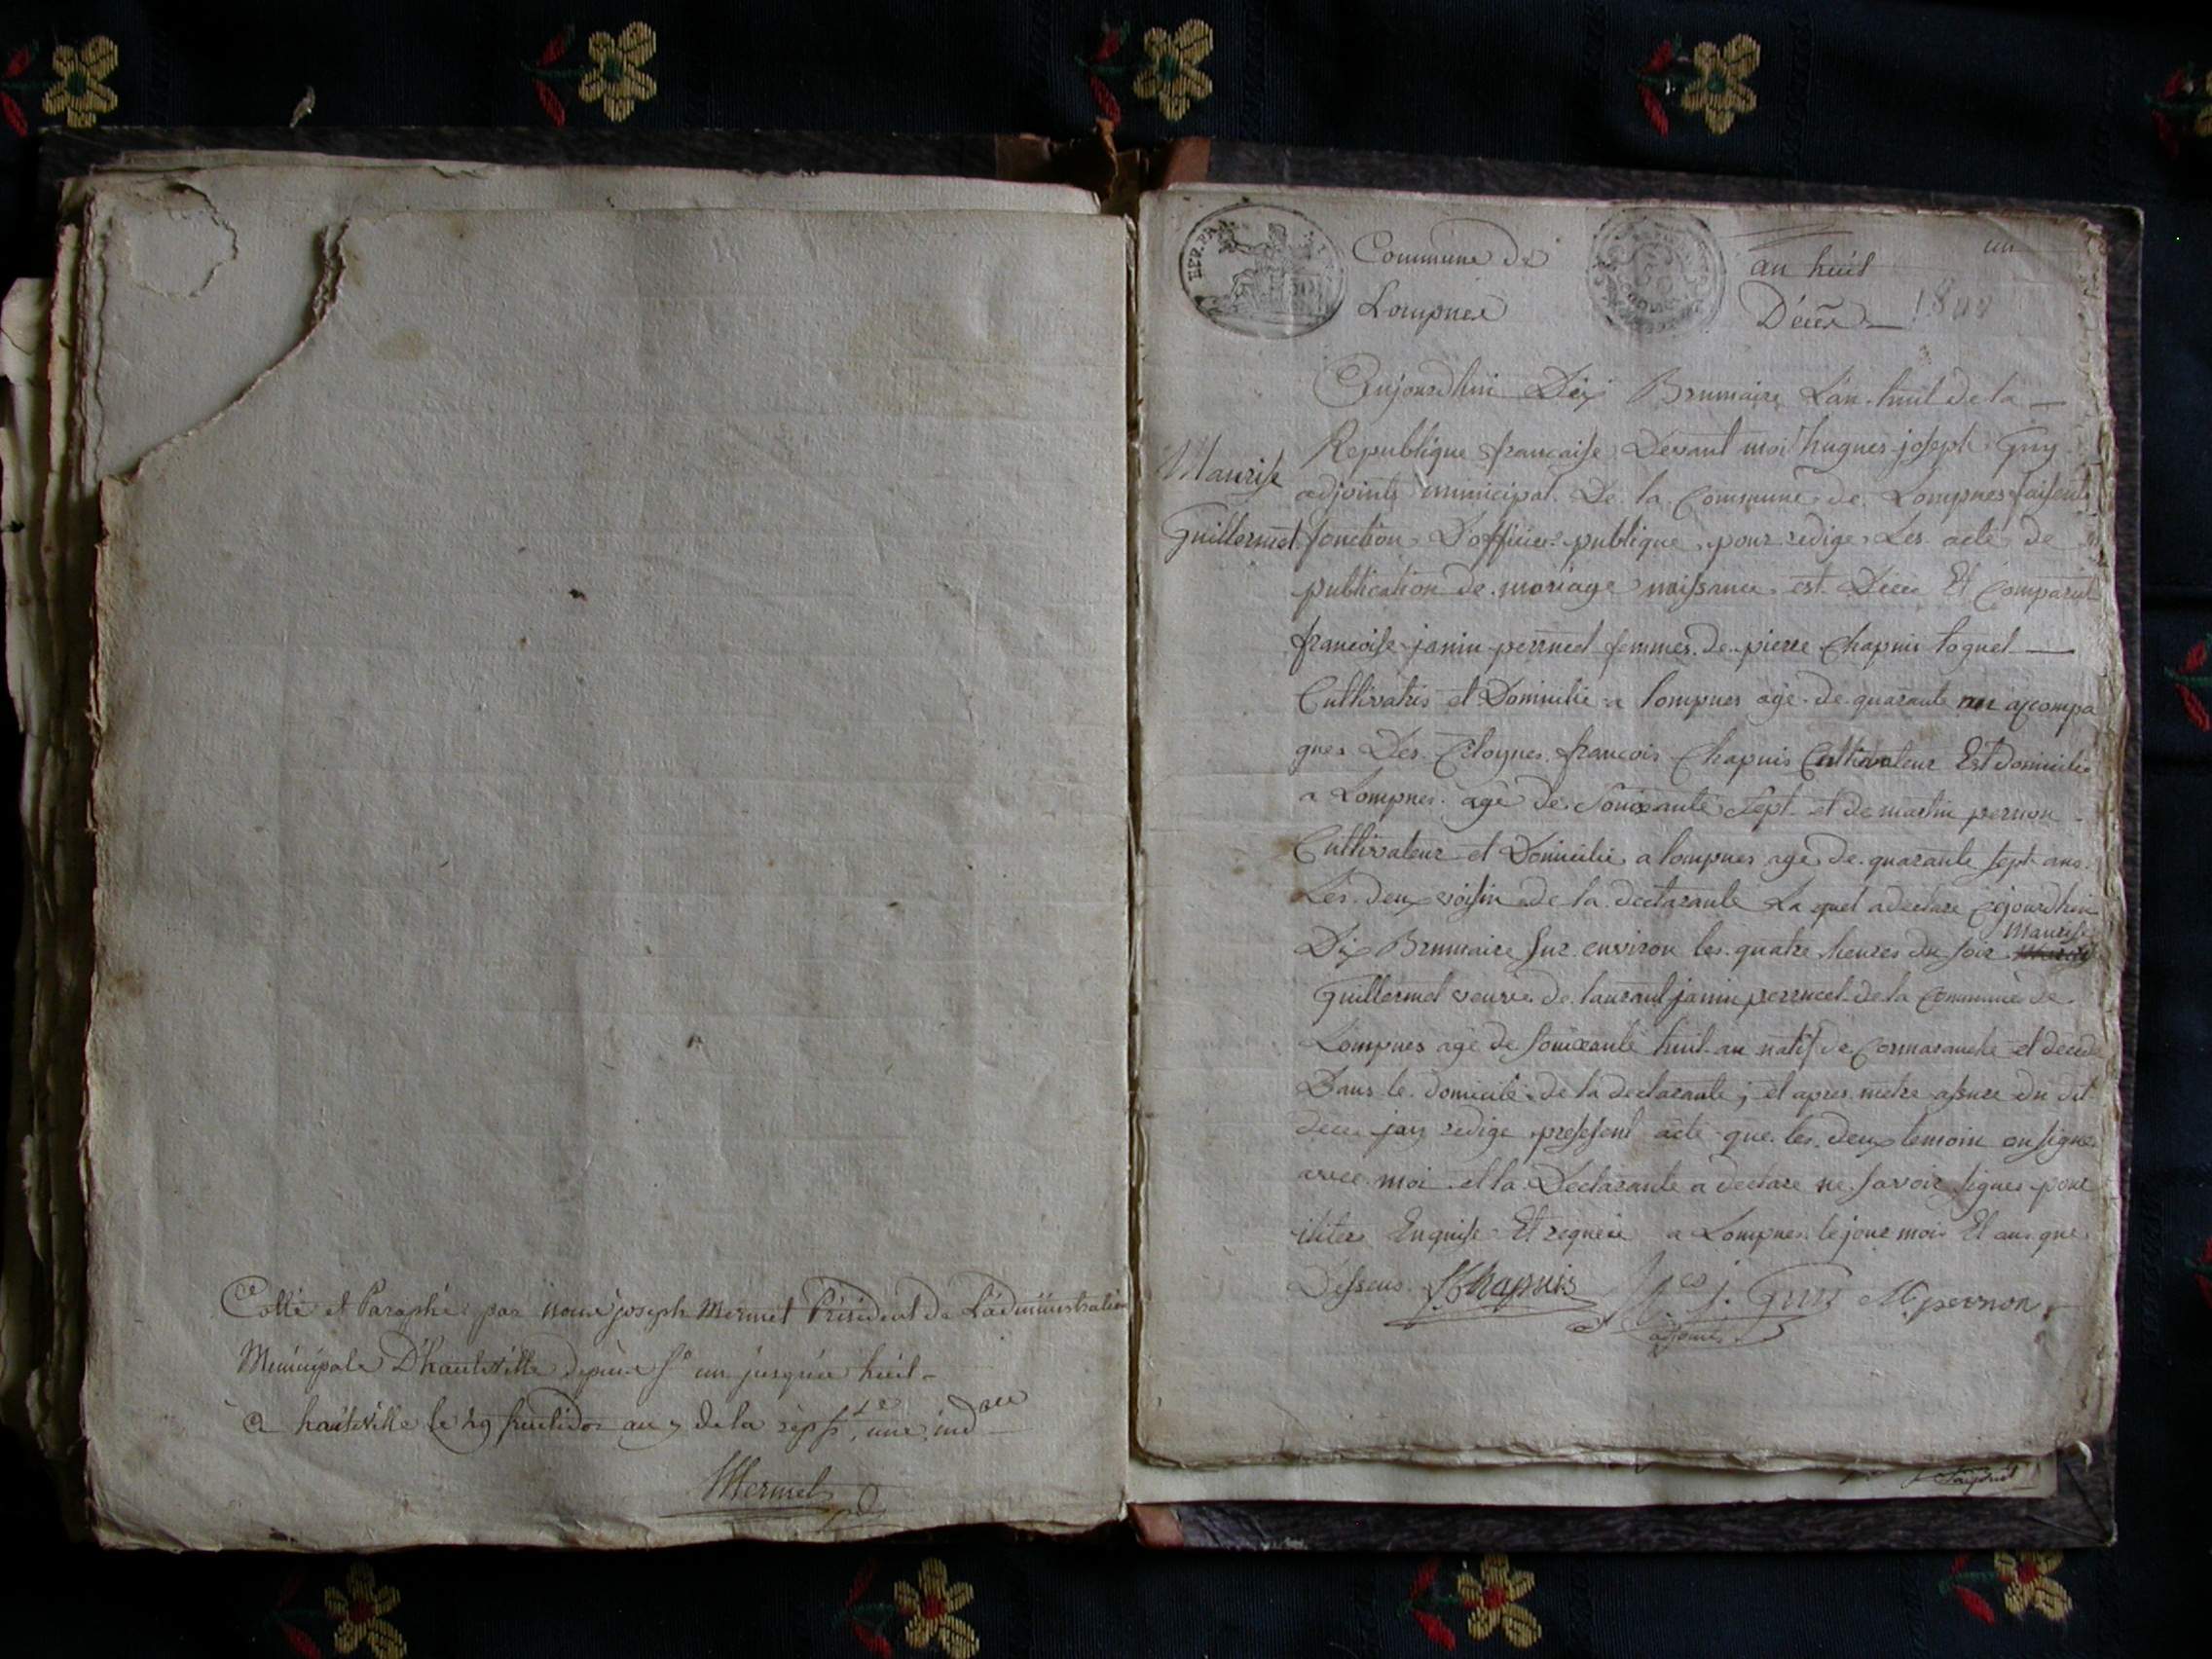 Cotté et Paraphé par nous joseph Mermet Président de L'administration
Municipale D'hauteville depuis f.o un jusqu'a huit
a hauteville le 29 fructidor an 7 de la rep fse, une, ind
Mermet
REP. FRA
Commune de
Lompnes
an huit
un
Décès
Aujourdhui Dix Brumaire L'an huit de la
Republique francaise Devant moi hugues joseph Guy
Maurise
adjoints municipal De la Commune de Lompnes faisent
Guillermet
fonction D'officier publique pour redige Les acte de
publication de mariage naissance est Dece Et Comparut
francoise janin perrucet femmes de pierre Chapuis toguet
Cultivatris et Domicilie a lompnes age de quarante an acompa
gnes Des Citoynes francois Chapuis Cultivateur Est domicilie
a Lompnes age de Souixante Sept et de martin pernon
Cultivateur et Domicilie a lompnes age de quarante sept ans
Les deux voisin de la declarante La quel a declare cejourdhui
Maurise
Dix Brumaire sur environ les quatre heures du soir
Guillermet veuve de laurant janin perrucet de la Commune de
Lompnes age de souixante huit an natif de Cormaranche et decede
Dans le domicile de la declarante, et apres metre assure du dit
dece jay redige present acte que les deux temoin on signe
avec moi et la Declarante a declare ne savoir signes pour
Enquise Et requise a Lompnes le jour mois Et ans que
Dessus f Chapuis h.es j. Guy M pernon
adjoint